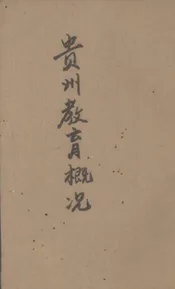 貴州教育概况